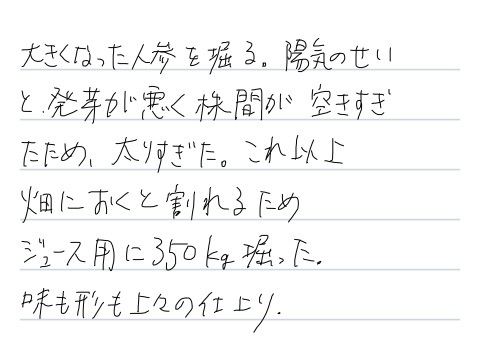 大きくなった人参を掘る。陽気のせい
と、発芽が悪く株間が空きすぎ
たため、太りすぎた。これ以上
畑におくと割れるため
ジュース用に350kg掘った。
味も形も上々の仕上り.